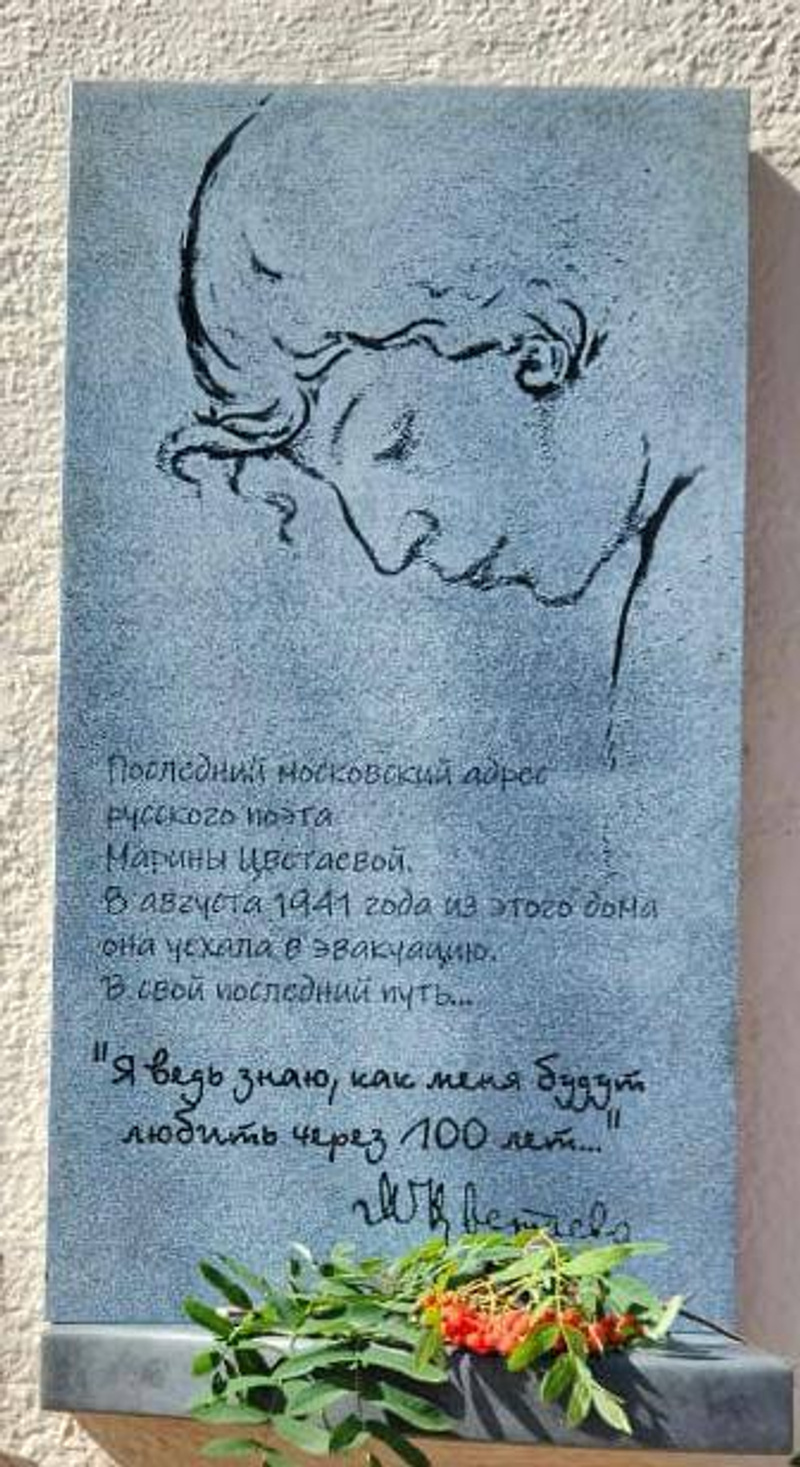 Последний московский адрес
русского поэта
Марины Цветаевой.
8 августа 1941 года из этого дома
она уехала в эвакуацию.
В свой последний путь...
"Я ведь знаю, как меня будут
любить через 100 лет..."
МЦветаева